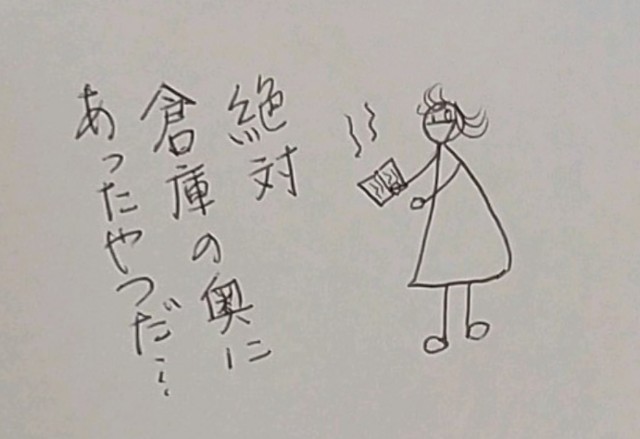 絶対
倉庫の奥に
あったやつだ…